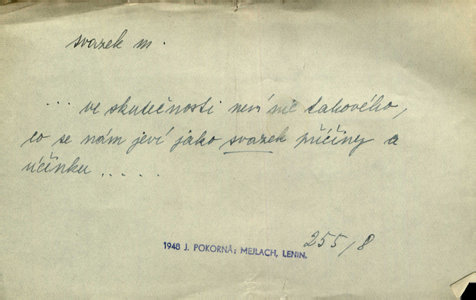 svazek m.
... ve skutečnosti není nic takového,
co se nám jeví jako svazek příčiny a
účinku .....
1948 J. POKORNÁ; MEJLACH, LENIN.
255/8